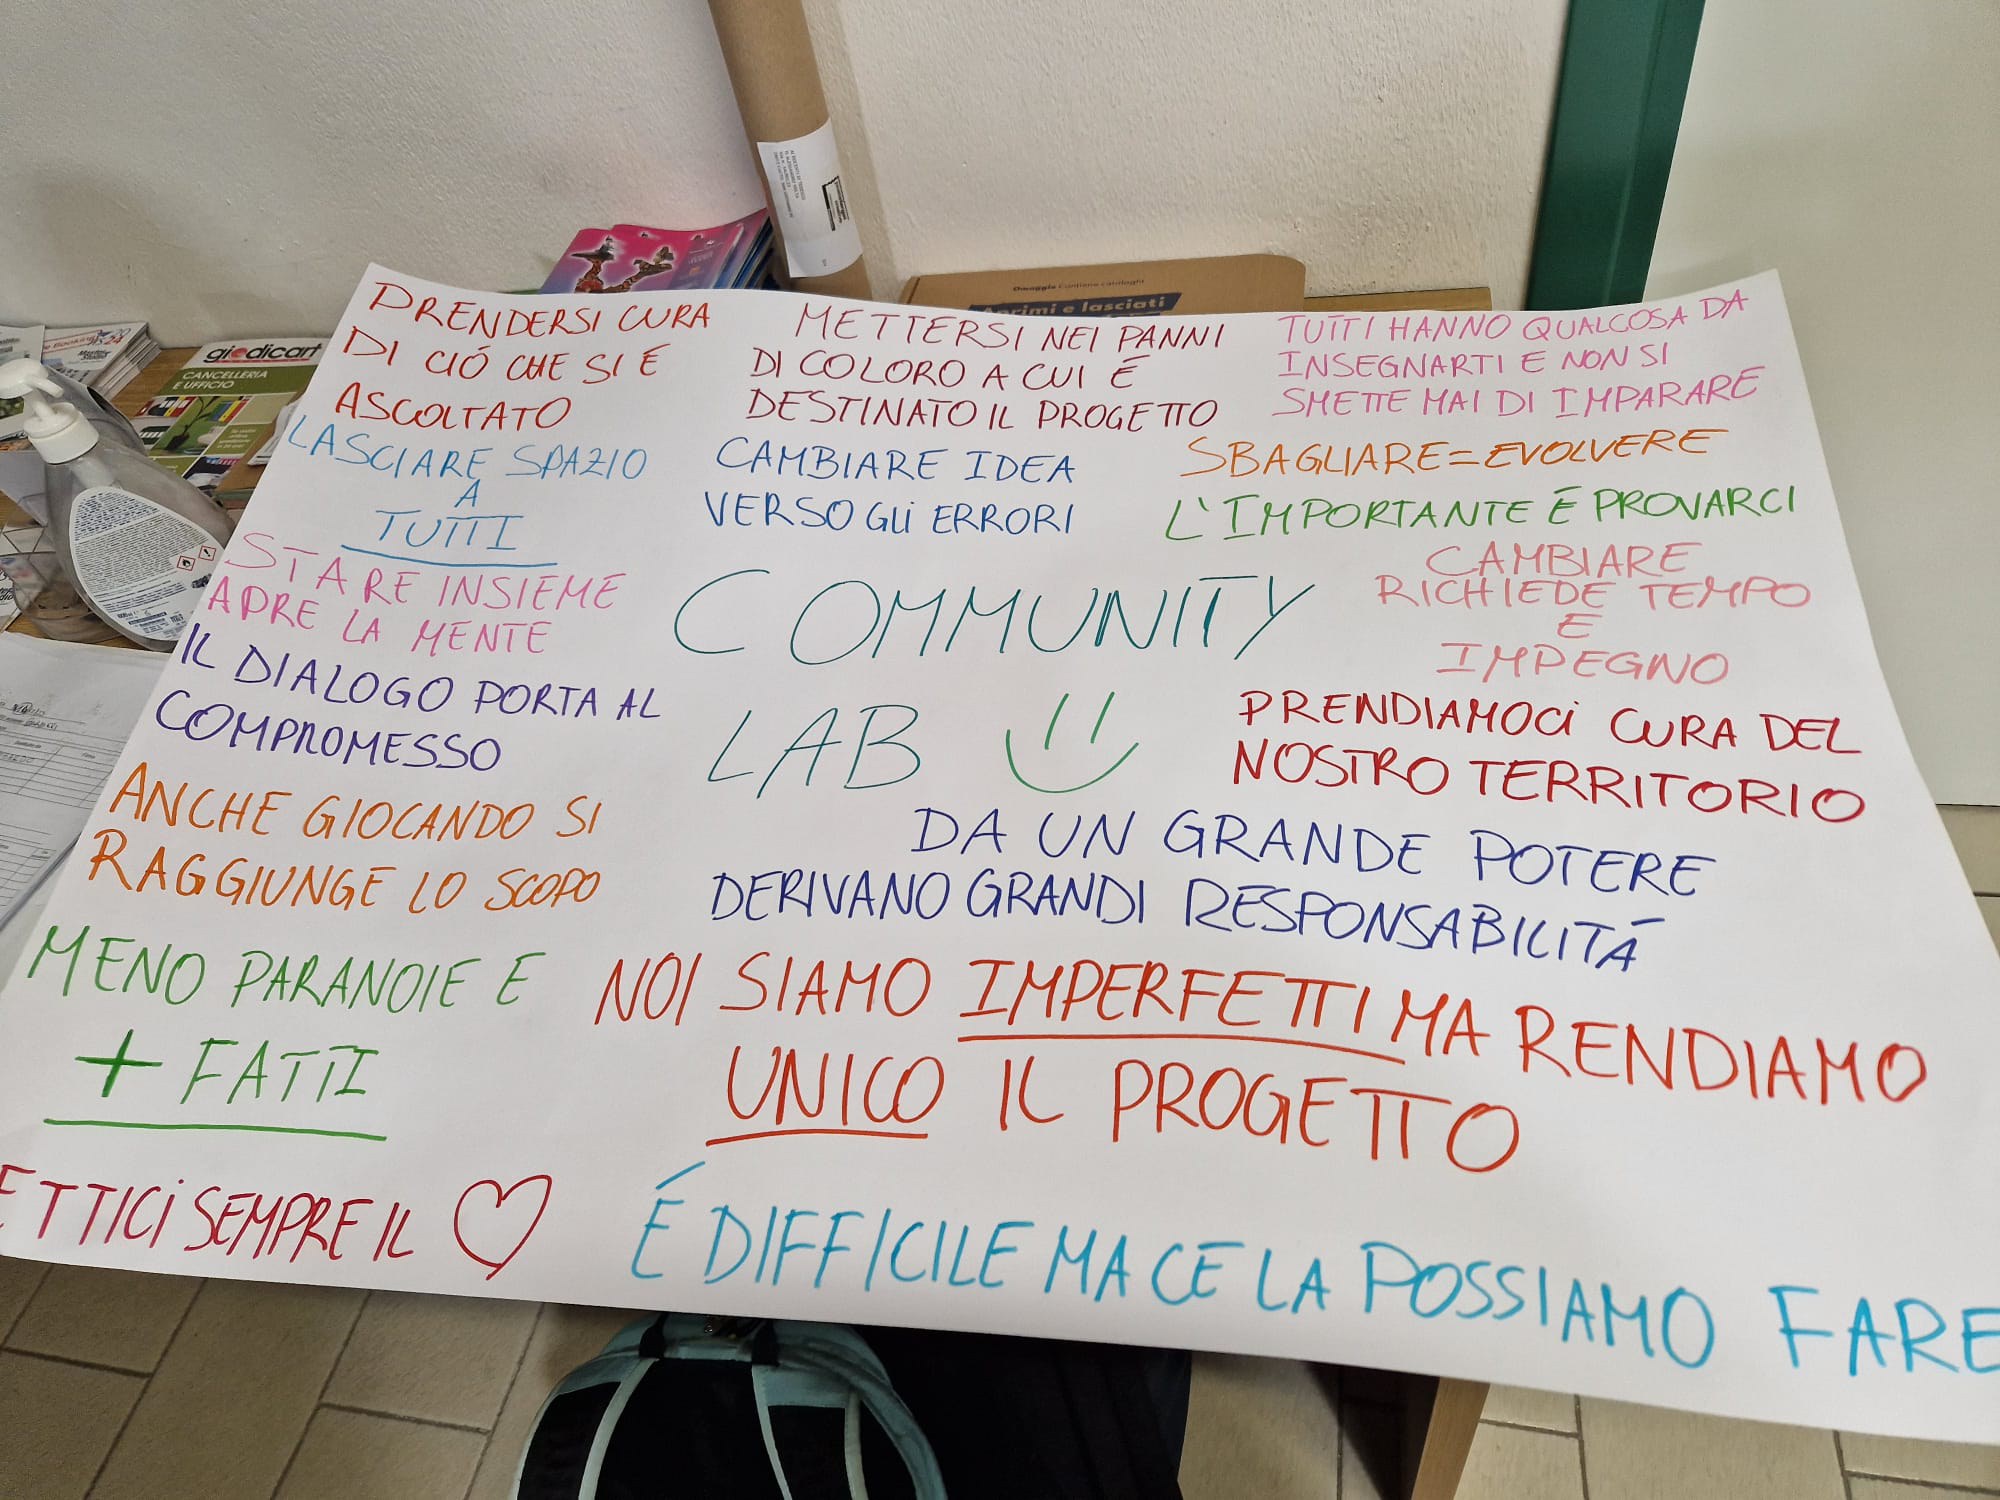 PRENDERSI CURA
DI CIÓ CHE SI É
ASCOLTATO
METTERSI NEI PANNI
DI COLORO A CUI É
DESTINATO IL PROGETTO
TUTTI HANNO QUALCOSA DA
INSEGNARTI E NON SI
SMETTE MAI DI IMPARARE
LASCIARE SPAZIO
A
TUTTI
CAMBIARE IDEA
VERSO GLI ERRORI
SBAGLIARE=EVOLVERE
L'IMPORTANTE É PROVARCI
STARE INSIEME
APRE LA MENTE
COMMUNITY
LAB
CAMBIARE
RICHIEDE TEMPO
E
IMPEGNO
IL DIALOGO PORTA AL
COMPROMESSO
PRENDIAMOCI CURA DEL
NOSTRO TERRITORIO
ANCHE GIOCANDO SI
RAGGIUNGE LO SCOPO
DA UN GRANDE POTERE
DERIVANO GRANDI RESPONSABILITÁ
MENO PARANOIE E
+ FATTI
NOI SIAMO IMPERFETTI MA RENDIAMO
UNICO IL PROGETTO
ETTICI SEMPRE IL
É DIFFICILE MA CE LA POSSIAMO FARE
giodicart
CANCELLERIA
E UFFICIO
Omaggio Contiene cataloghi
Aprimi e lasciati